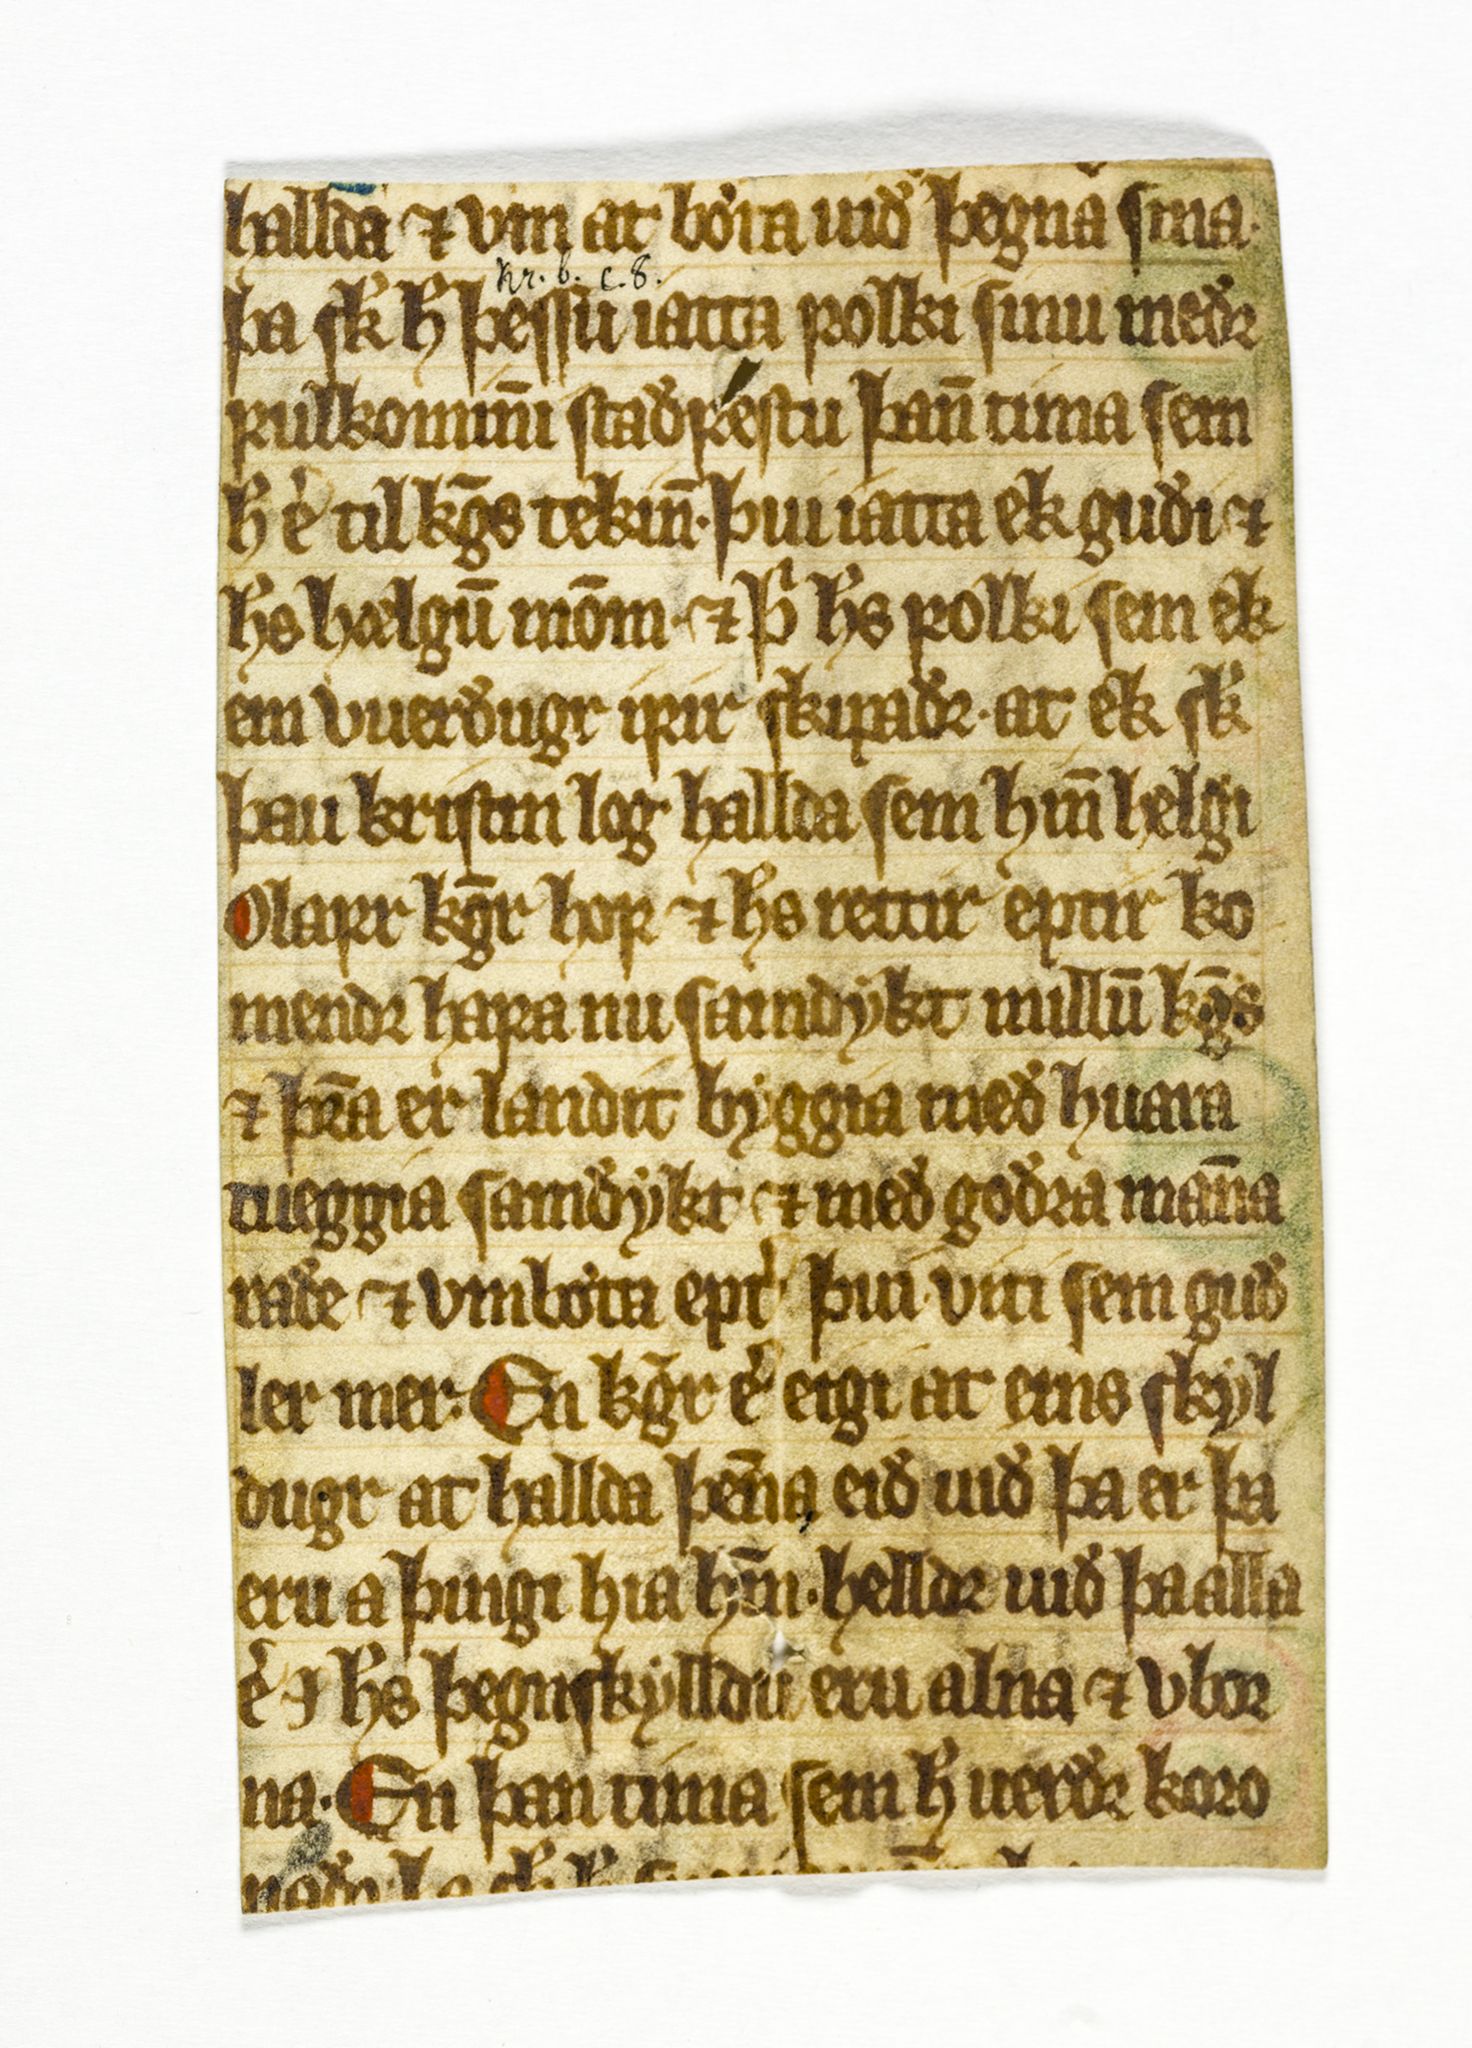 hallda ⁊ vm at bǿta uıð þegna sína·
kr. b. c. 8.
þa ſk̕ h̅ þeſſu ıatta ꝼolkı ſınu meðꝛ
ꝼulkomın̅ı ſtaðꝼeſtu þan̅ tíma ſem
h̅ e͛ tıl kg̅s tekın̅· þuı ıatta ek guðı ⁊
h̅s hælgu̅ mo̅m· ⁊ þ̕ h̅s ꝼolkı ſem ek
em vuerðugr ıꝼır ſkıpaðꝛ· at ek ſk̕
þau krıſtın log hallda ſem hın̅ helgı
Olaꝼr kg̅r hoꝼ ⁊ h̅s rettır eptır ko
mendꝛ haꝼa nu ſamðẏkt mıllu̅ kg̅s
⁊ þr̅a er landıt bẏggıa með huara
tueggıa ſamðẏkt ⁊ með goðꝛa man̅a
raðe ⁊ vmbǿta ept͛ þuı vıtı ſem guð
ler mer· En kg̅r e͛ eıgı at eıns ſkẏl
dugr at hallda þen̅a eıð uıð þa er þa
eru a þıngı hıa hm̅· helldꝛ uıð þa alla
e͛ ı h̅s þegnſkẏlldu eru alna ⁊ vboꝛ
na· En þan tíma ſem h̅ uerðꝛ koꝛo